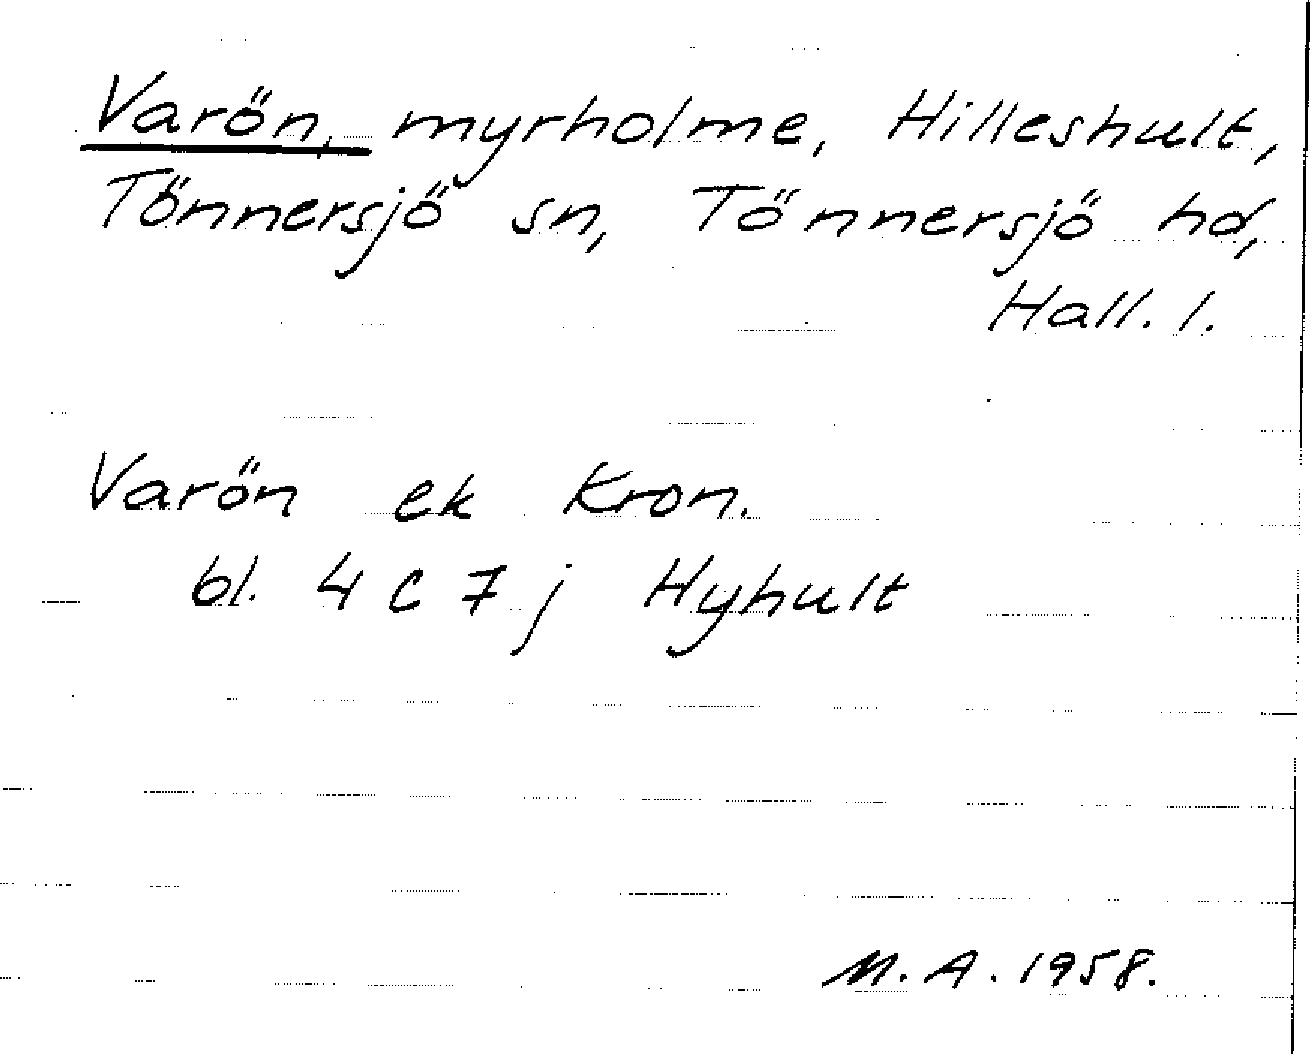 Varön, myrholme, Hilleshult,
Tönnersjö sn, Tönnersjö hd,
Hall. l.
Varön ek Kron.
bl. 4 C 7 j Hyhult
M. A. 1958.